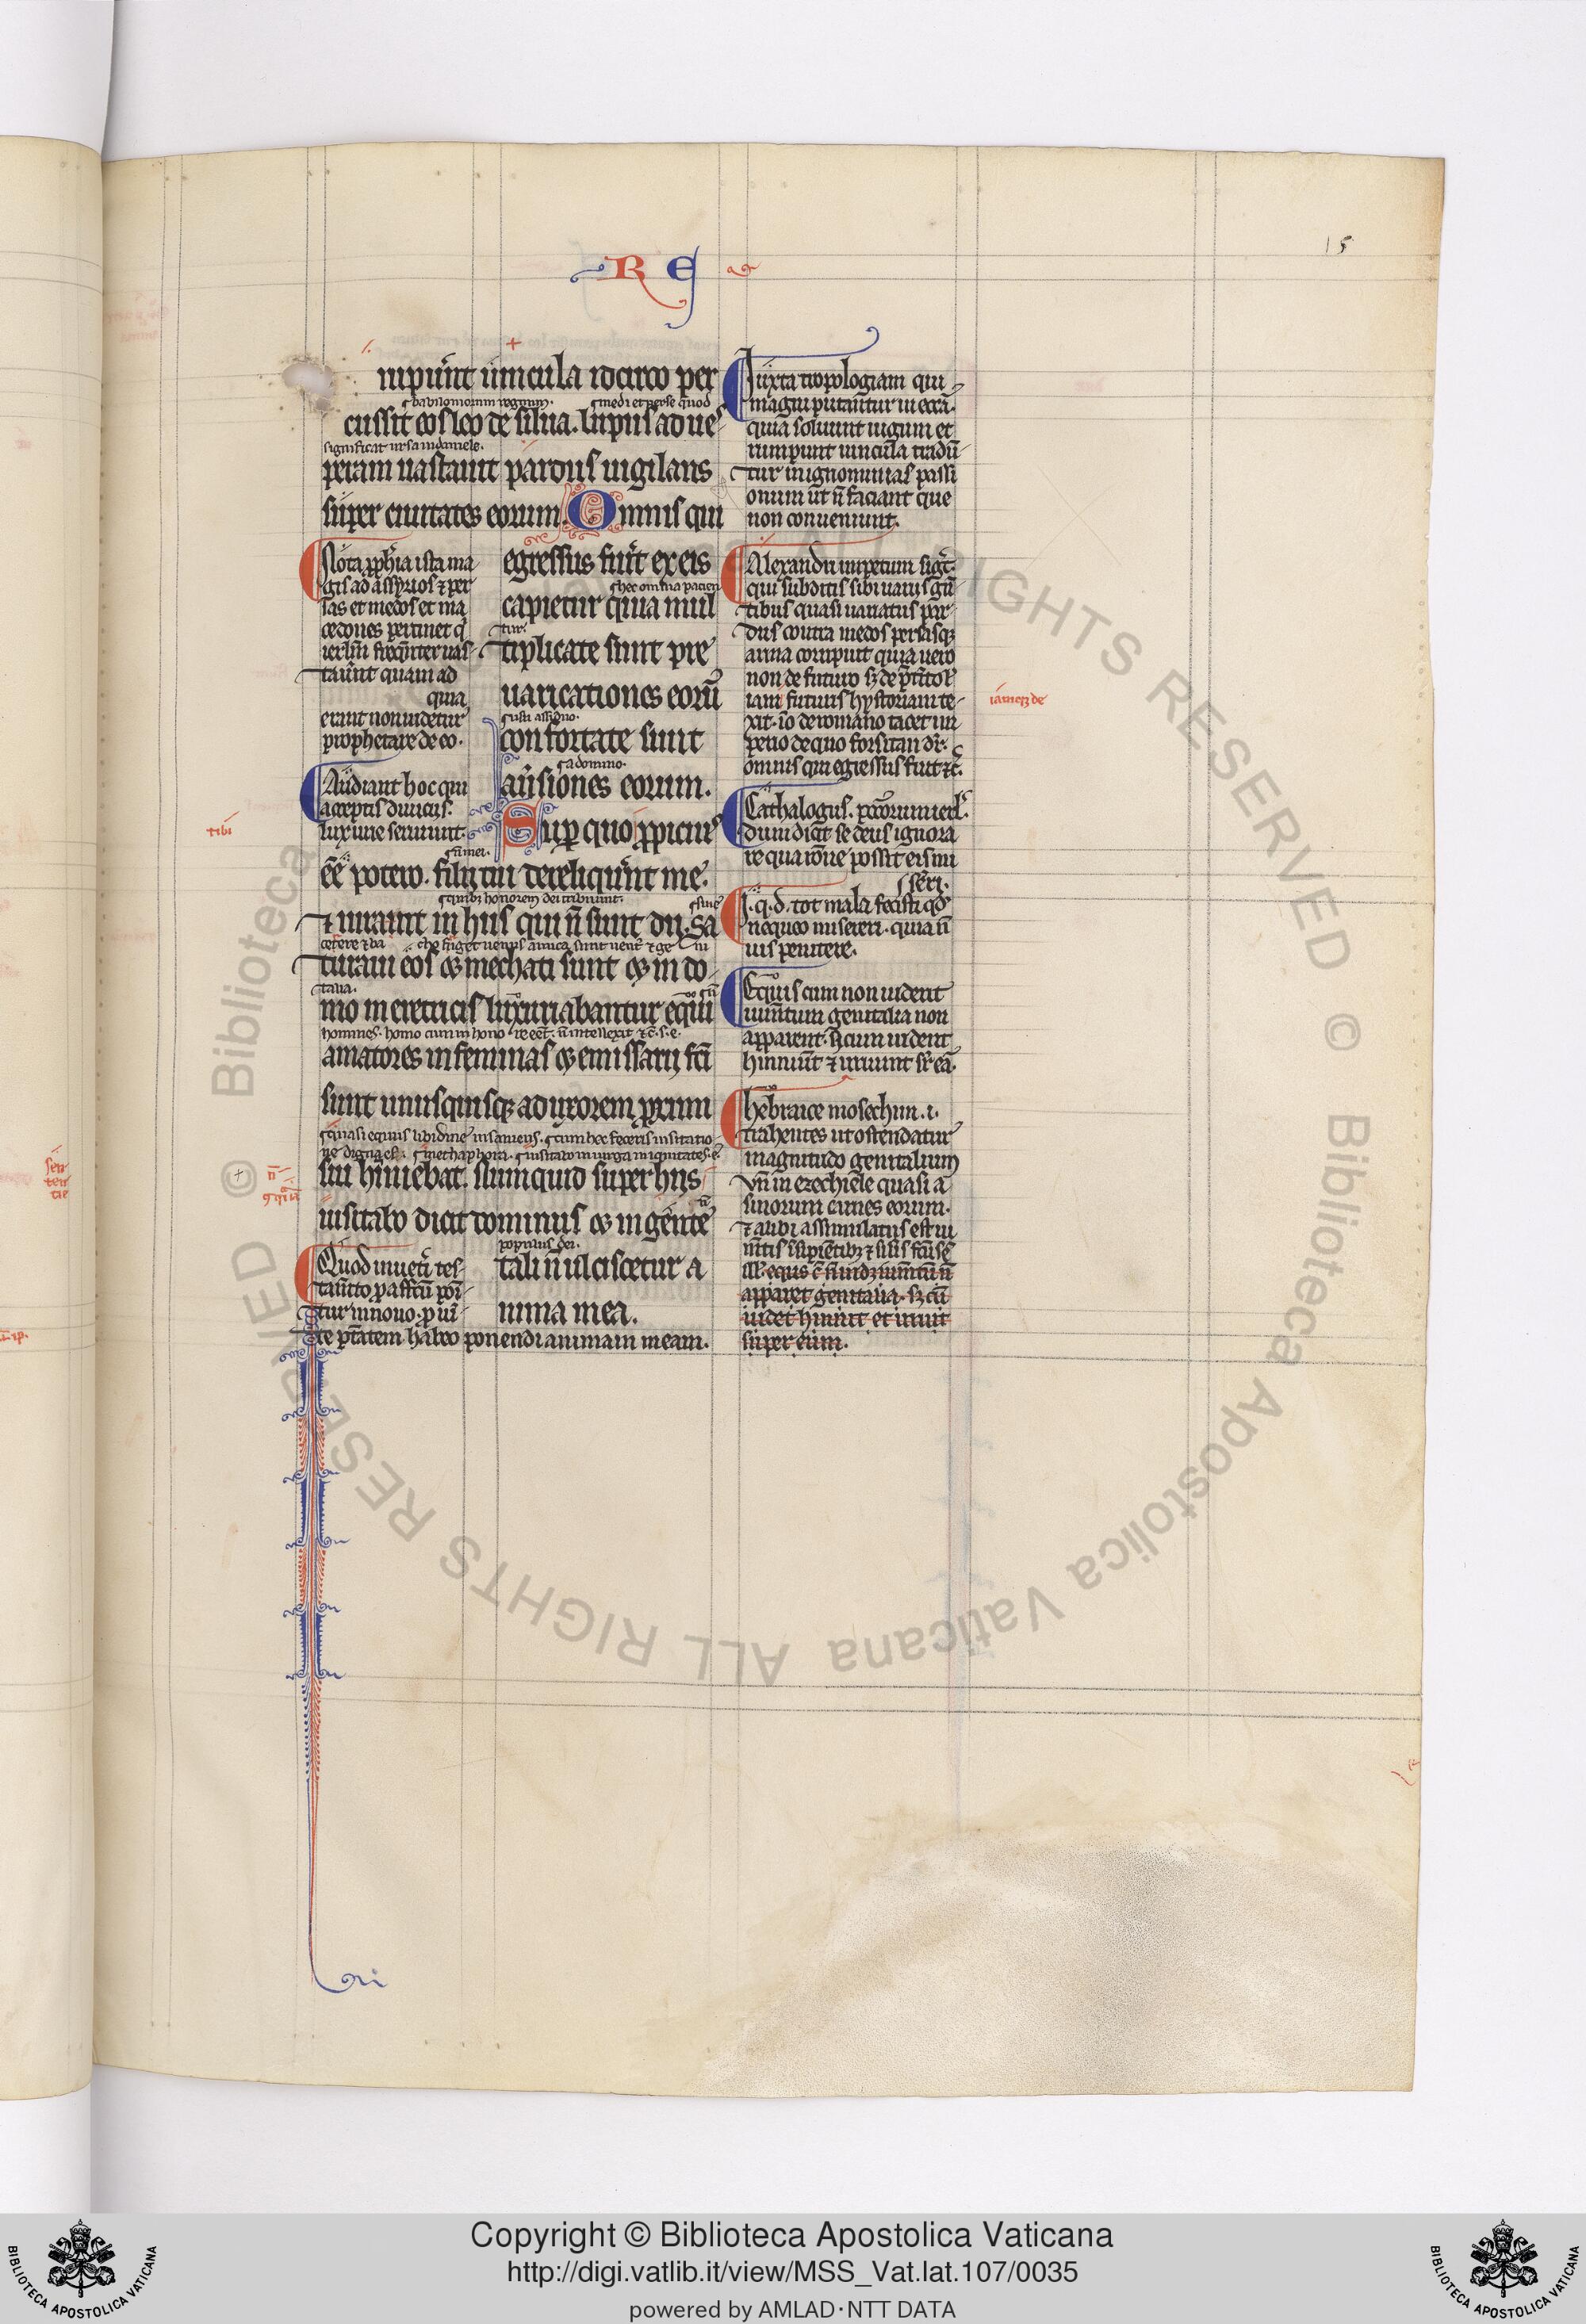 R E
15
rupert̄ uincula idcirco per
babiloniorum regnum. medi et perse quod
cussit eos leo de silua. lupus ad ues
significat ursa in daniele.
peram uastauit pardus uigilans
super ciuitates eorum. Omnis qui
egressus fuĩt ex eis
hec omnia pacien
capietur quia mul
tur.
tiplicate sunt pre
uaricationes eorū
confortate sunt
a domino.
auersiones eorum.
Sup̱ quo ꝓpicius
ēe potero. filij tui dereliquert̄ me.
quibꝫ honorem dei tribuunt. siue
⁊ iurant in hiis qui n̄ sunt dii. Sa
turaui eos ⁊ mechati sunt ⁊ in do
talia.
mo meretricis luxuriabantur equi
amatores in feminas ⁊ emissarij fc̄i
sunt unusquisqꝫ ad uxorem proximi
quasi equus libidine insaniens. cum hec feceris in sitatio
sui hiniebat. Numquid super hiis
n̄
uisitabo dicit dominus ⁊ in gente
populus dei.
tali n̄ ulciscetur a
nima mea.
Nota ꝓph̄ia ista ma
gis ad assyrios ⁊ per
sas et medos et ma
cedones pertinet q̄
ierl̄m freqūter uas
tauert̄ quam ad
quia
erant non uidetur
prophetare de eo.
Audiant hoc qui
acceptis diuiciis.
luxurie seruiunt.
Quod in ueteri tes
tam̄to ꝓ affectū poni
tur in nouo. ꝓ ui
te ptātem habeo ponendi animam meam.
Iuxta tropologiam qui
magni putantur in eccl̄a.
quia soluunt iugum et
rumpunt uincula tradū
tur in ignominias passi
onum ut n̄ faciant que
non conueniunt.
Alexandri impetum sigt̄.
qui subditis sibi uariis gen̄
tibus quasi uariatus par
dus contra medos persasqꝫ
arma corripuit quia uero
non de futuro sꝫ de p̄terito
iam futuris hystoriam te
xit. iō de romano tacet im
perio de quo forsitan dr̄.
omnis qui egressus fuit ⁊c̄.
Cathalogus. pccōrum ierl̄.
dum dicit se deus ignora
re qua rōne possit eis mi
seri.
.q.d. tot mala fecisti qd̄
nequeo misereri. quia n̄
uis penitere.
Equis cum non uident
iumentum genitalia non
apparent. si cum uident
hinniunt ⁊ irruunt sr̄ eā.
Hebraice mosechim .i.
trahentes ut ostendatur
magnitudo genitalium
vn̄ in ezechiele quasi a
sinorum carnes eorum.
⁊ alibi assimilatus est iu
mentis insipientibꝫ ⁊ similis factus ē
apparet genitalia. sꝫ cū
uidet hinnit et irruit
super eum.
tibi
iamqꝫ de
sen
ten
tie
Copyright © Biblioteca Apostolica Vaticana
http://digi.vatlib.it/view/MSS_Vat.lat.107/0035
powered by AMLAD·NTT DATA
BIBLIOTECA APOSTOLICA VATICANA
BIBLIOTECA APOSTOLICA VATICANA
© Biblioteca Apostolica Vaticana ALL RIGHTS RESERVED